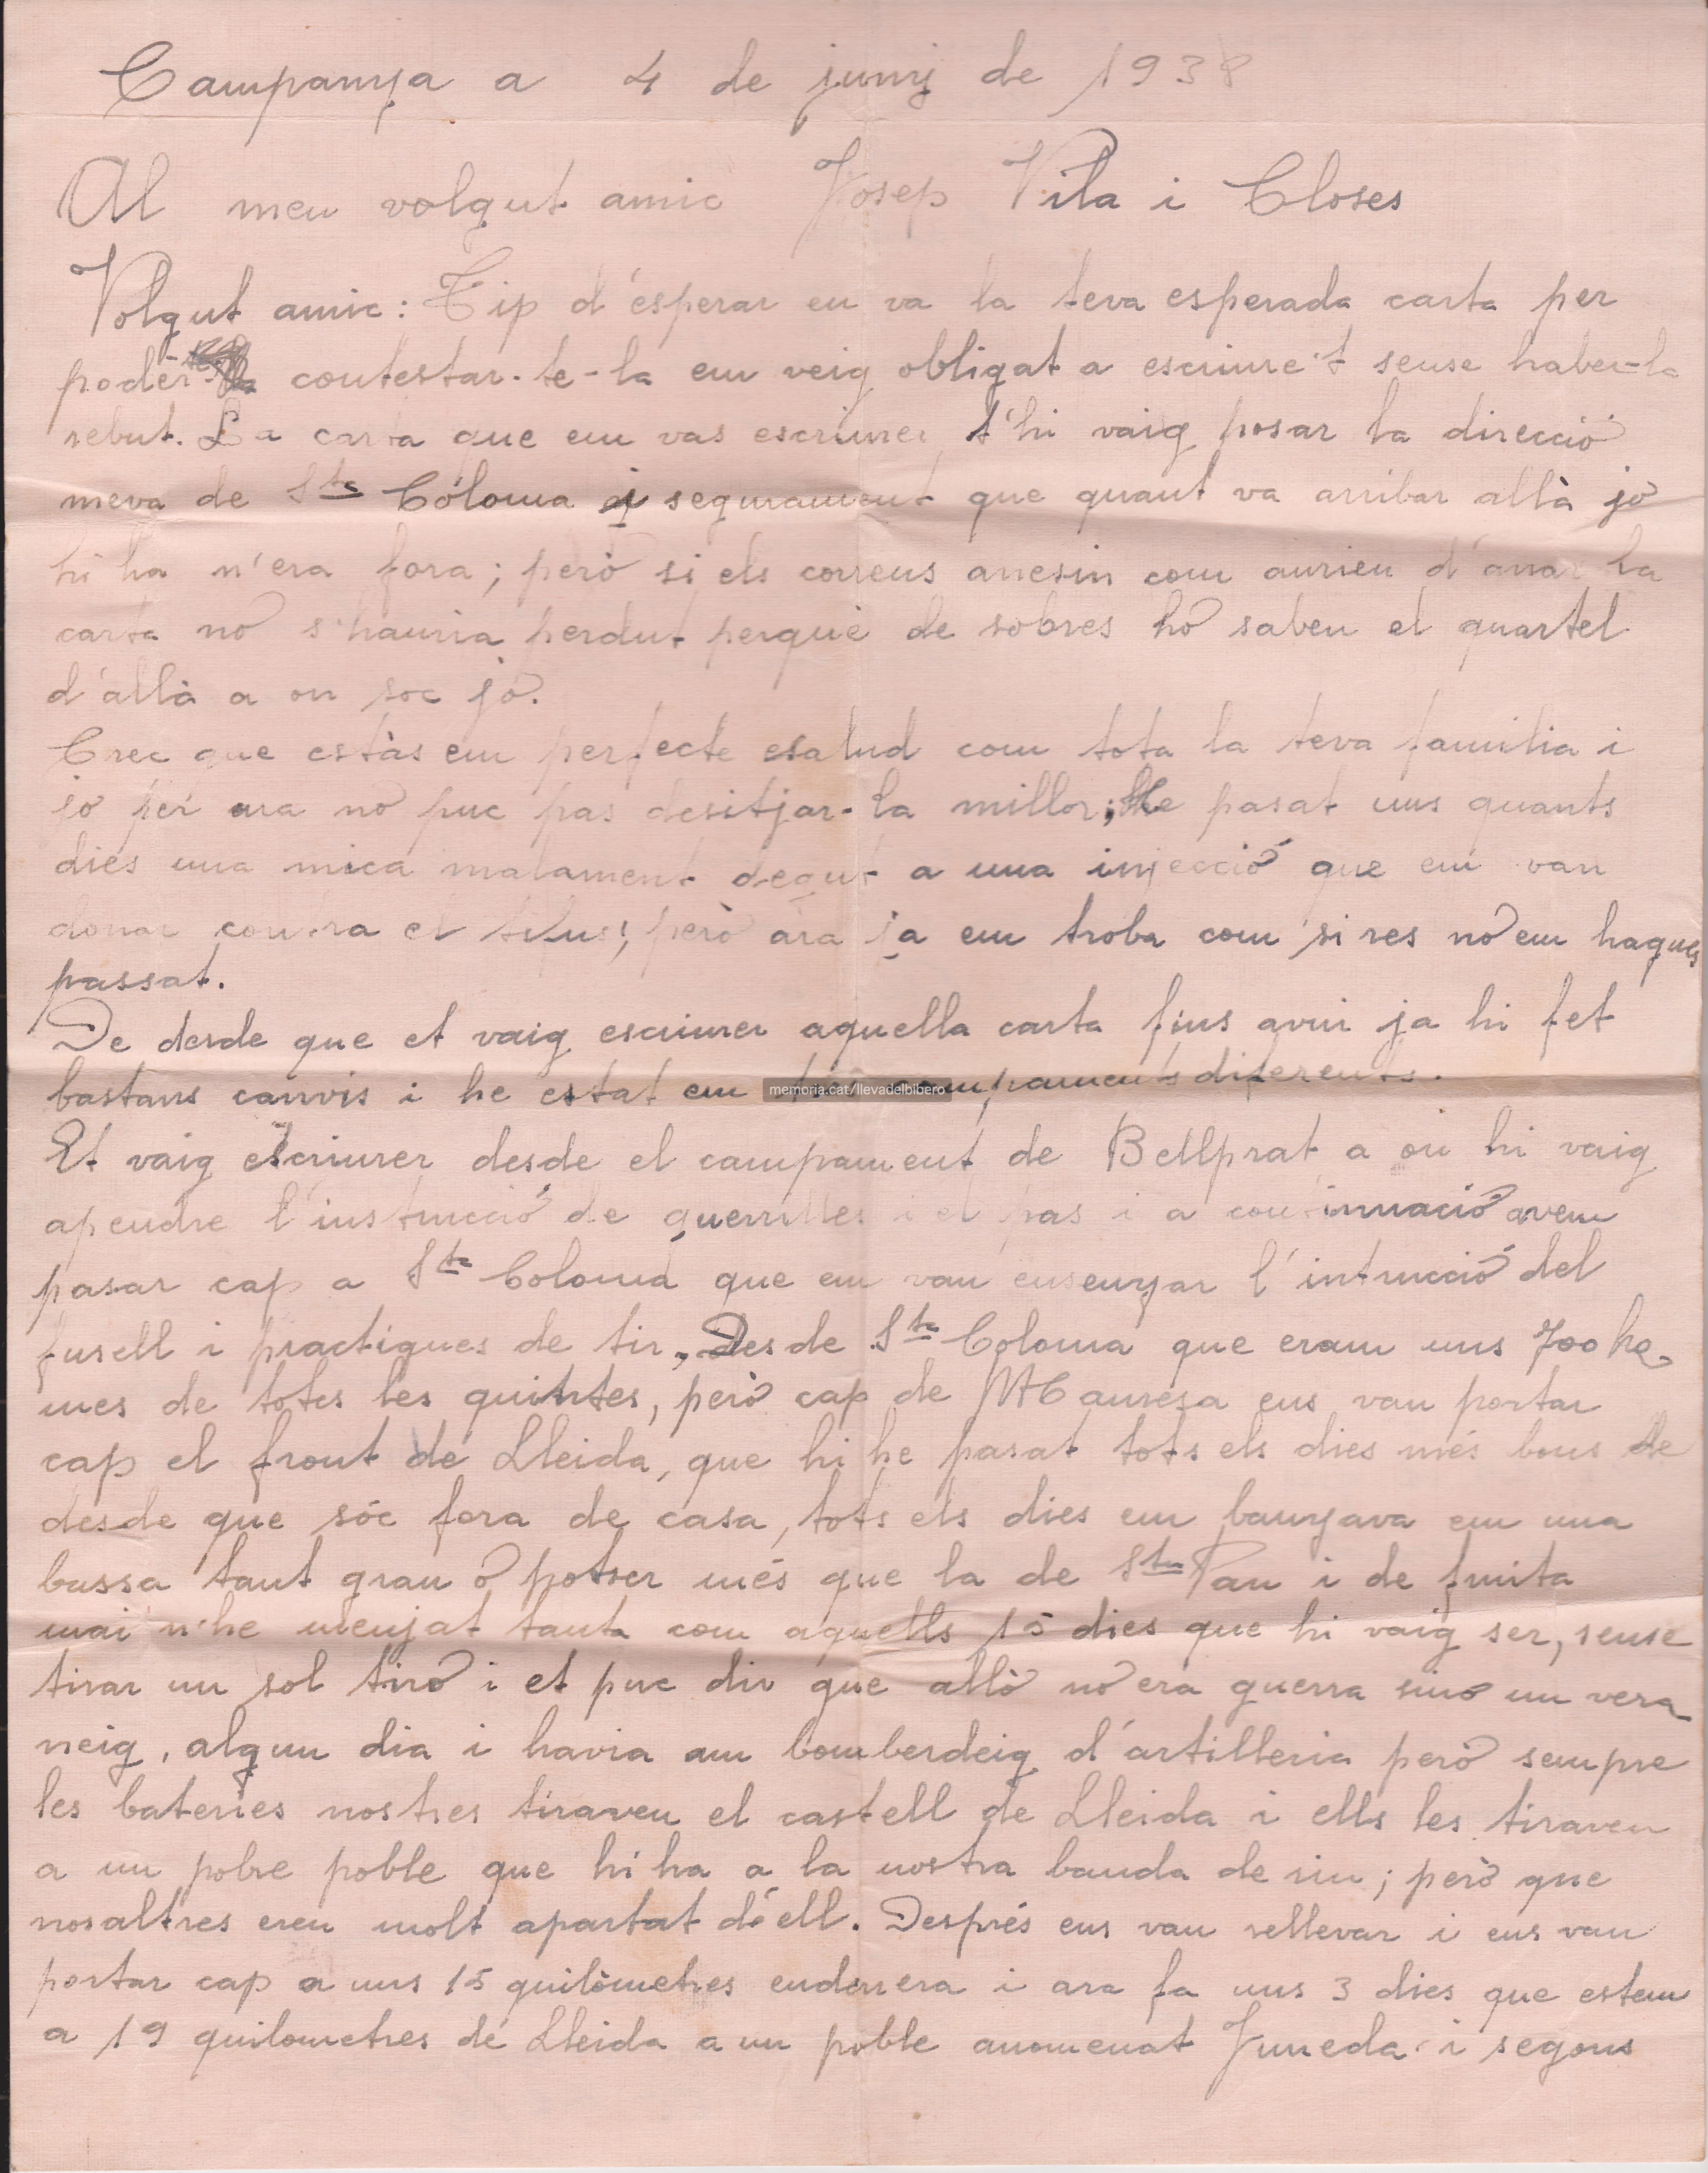 Campanya a 4 de juny de 1938
Al meu volgut amic Josep Vila i Closes
Volgut amic: Tip d'esperar en va la teva esperada carta per
poder contestar-te-la em veig obligat a escriure't sense haber-la
rebut. La carta que em vas escriurer t'hi vaig posar la direcció
meva de Sta Coloma i segurament que quant va arribar allà jo
hi ha n'era fora; però si els correus anesin com aurien d'anar la
carta no s'hauria perdut perquè de sobres ho saben el quartel
d'allà a on soc jo.
Crec que estàs em perfecte esalud com tota la teva familia i
jo per ara no puc pas desitjar-la millor; He pasat uns quants
dies una mica malament degut a una injecció que em van
donar contra el tifus; però ara ja em troba com si res no em hagues
passat.
De desde que et vaig escriurer aquella carta fins avui ja hi fet
bastans canvis i he estat em tres campaments diferents.
memoria.cat/llevadelbibero
Et vaig escriurer desde el campament de Bellprat a on hi vaig
apendre l'instrucció de guerrilles i el pas i a continuació avem
pasar cap a Sta Coloma que em van ensenyar l'intrucció del
fusell i practiques de tir, Desde Sta Coloma que eram uns 700 ho-
mes de totes les quintes, però cap de Manresa ens van portar
cap el front de Lleida, que hi he pasat tots els dies més bons de
desde que sóc fora de casa, tots els dies em banyava em una
bassa tant gran o potser més que la de St Pau i de fruita
mai n'he menjat tanta com aquells 15 dies que hi vaig ser, sense
tirar un sol tiro i et puc dir que allò no era guerra sino un vera
neig, algun dia i havia am bomberdeig d'artilleria però sempre
les bateries nostres tiraven el castell de Lleida i ells les tiraven
a un pobre poble que hi ha a la nostra banda de riu; però que
nosaltres erem molt apartat d'ell. Després ens van rellevar i ens van
portar cap a uns 15 quilòmetres enderrera i ara fa uns 3 dies que estem
a 19 quilometres de Lleida a un poble anomenat Juneda i segons